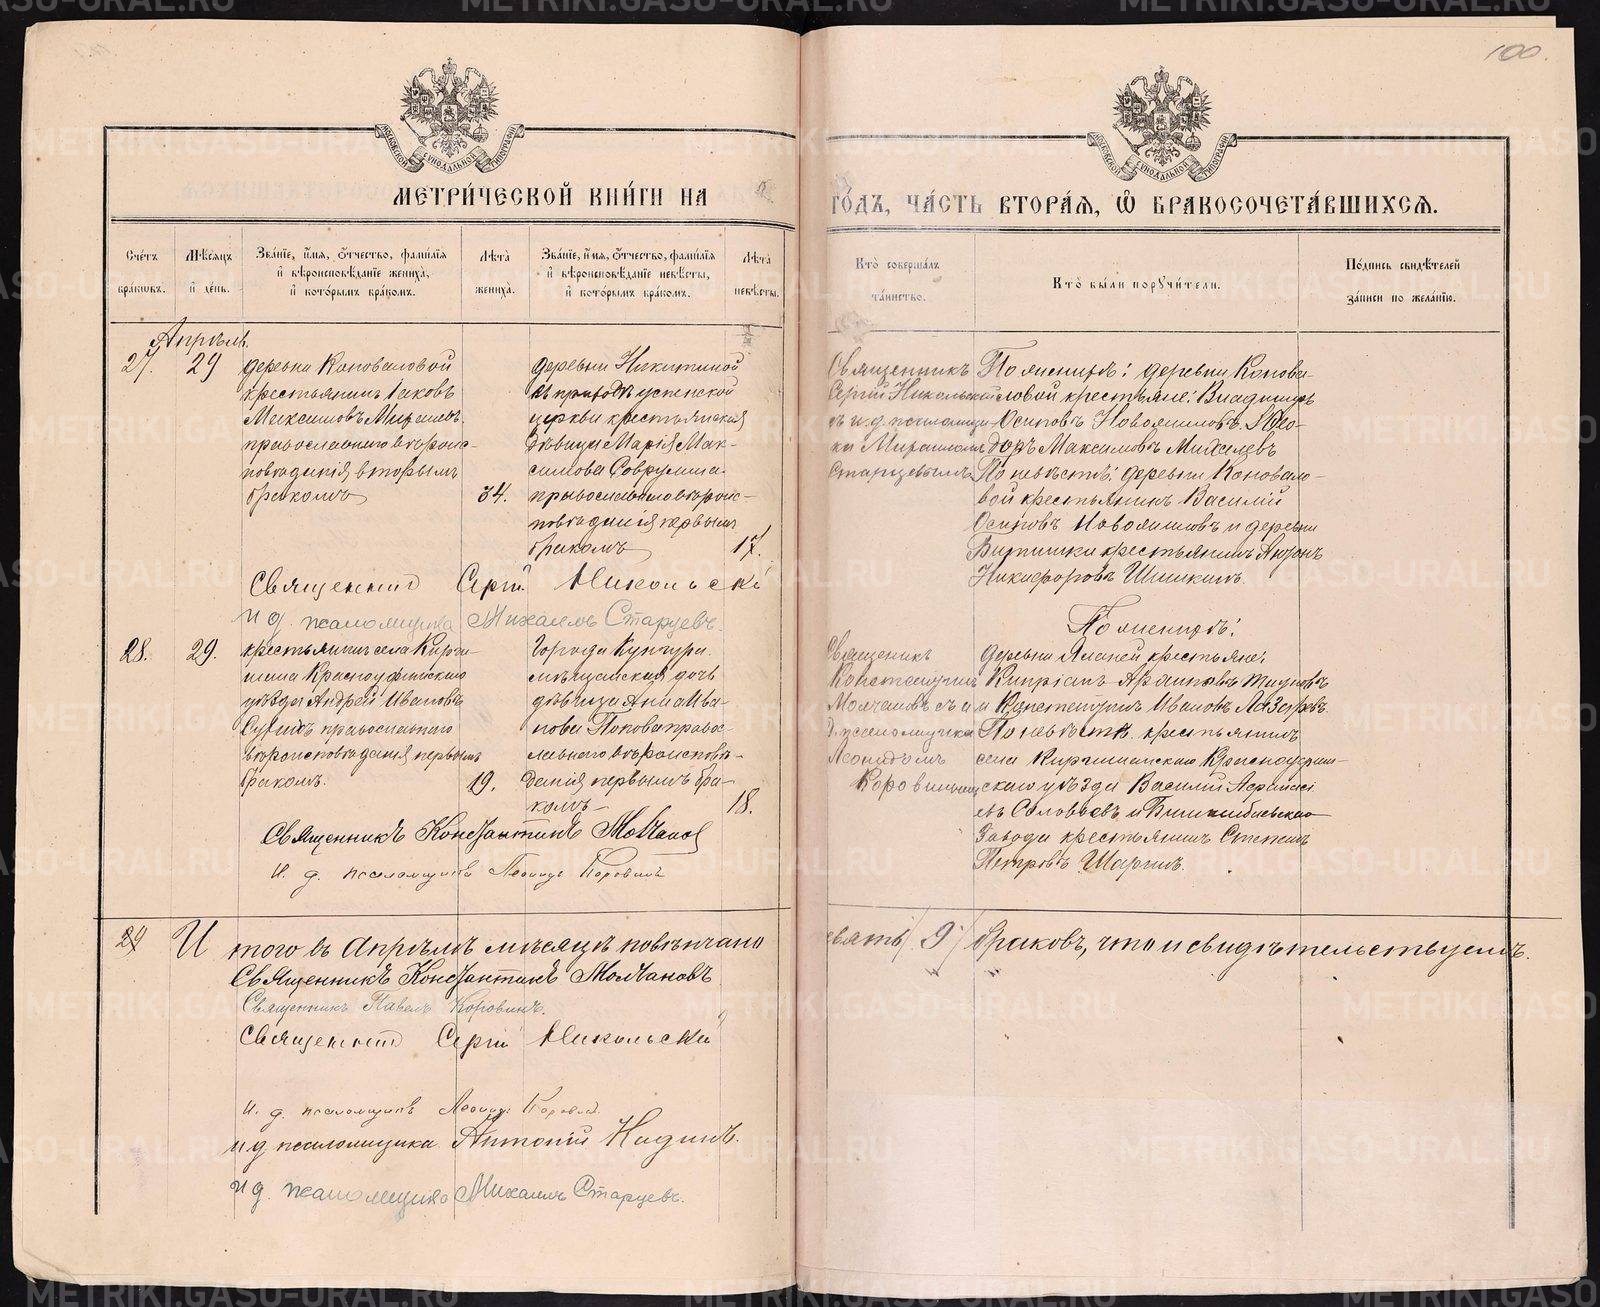 100.
МОСКОВСКОЙ СѴНОДАЛЬНОЙ ТИПОГРАФІИ
МОСКОВСКОЙ СѴНОДАЛЬНОЙ ТИПОГРАФІИ
МЕТРИ́ЧЕСКОЙ КНИ́ГИ НА
ГО́ДЪ, ЧА́СТЬ ВТОРА́Я, Ѿ БРАКОСОЧЕТА́ВШИХСЯ.
Сче́тъ бра́ковъ.
Мѣ́сяцъ и де́нь.
Зва́нїе, и́мя, ѻ҆́тчество, фамилїя и вѣроисповѣ́данїе жениха̀, и кото́рымъ бра́комъ.
Лѣ́та жениха̀.
Зва́нїе, и́мя, ѻ҆́тчество, фамилїя и вѣроисповѣ́данїе невѣ́сты, и кото́рымъ бра́комъ.
Лѣ́та невѣ́сты.
Кто̀ соверша́лъ та́инство.
Кто̀ бы́ли поручи́тели.
По́дпись свидѣ́телей за́писи по жела́нїю.
Апрѣль.
27. 29
деревни Коноваловой
крестьянинъ Іаковъ
Максимовъ Михалевъ,
православнаго вѣроис-
повѣданія вторымъ
бракомъ
34.
деревни Никитиной
въ приходѣ успенской
церкви крестьянская
дѣвица Марія Мак-
симова
православнаго вѣроис-
повѣданія первымъ
бракомъ
17.
Священникъ
Сергій Никольскій
съ и. д. псаломщи-
ка Михаиломъ
Старцевымъ
По женихѣ: деревни Конова-
ловой крестьяне: Владиміръ
Осиповъ Новожиловъ и Ѳео-
доръ Максимовъ Михалевъ
По невѣстѣ: деревни Коновало-
вой крестьянинъ Василій
Осиповъ Новожиловъ и деревни
крестьянинъ
Никифоровъ Шишкинъ.
Священникъ Сергій Никольскій
И д. псаломщика Михаилъ Старцевъ.
28. 29.
крестьянинъ села Кирги-
шана Красноуфимскаго
уѣзда Андрей Ивановъ
православнаго
вѣроисповѣданія первымъ
бракомъ.
19.
Города Кунгура
мѣщанская дочь
дѣвица Анна Ива-
нова Попова правос-
лавнаго вѣроисповѣ-
данія первымъ бра-
комъ
18.
Священникъ
Константинъ
Молчановъ съ и
д. псаломщика
Леонидомъ
Коровинымъ
По женихѣ:
деревни крестьяне:
Кипріанъ
и Константинъ Ивановъ Лазаревъ
По невѣстѣ крестьянинъ
села Киргишанскаго Красноуфим-
скаго уѣзда Василій
евъ Соловьевъ и Бисертскаго
завода крестьянинъ Степанъ
Петровъ
Священникъ Константинъ Молчановъ
И. д. псаломщика Леонидъ Коровинъ
Итого въ Апрѣлѣ мѣсяцѣ повѣнчано
девять /9/ браковъ, что и свидѣтельствуемъ.
Священникъ Константинъ Молчановъ
Священникъ Павелъ Коровинъ.
Священникъ Сергій Никольскій
И. д. псаломщика Леонидъ Коровинъ.
и д. псаломщика Антоній
И д. псаломщика Михаилъ Старцевъ.
METRIKI.GASO-URAL.RU